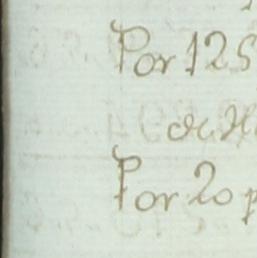 Por 125
de
Por 20 p